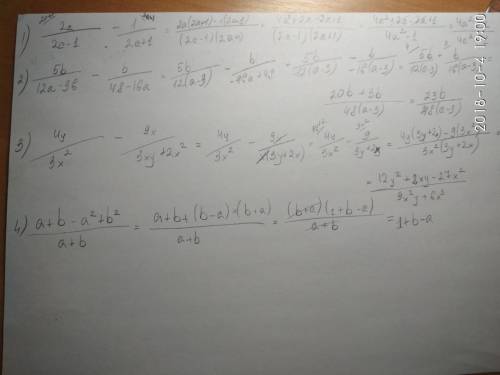 1) 2a/(2a-1) - 1/(2a+1) = (2a(2a+1) - 1(2a-1))/((2a-1)(2a+1)) = (4a²+2a-2a+1)/((2a-1)(2a+1)) = (4a²+2a-2a+1)/(4a²-1) = 4a²
2) 5b/(12a-36) - b/(48-16a) = 5b/(12(a-3)) - b/(-16a+48) = 5b/(12(a-3)) - b/(-16(a-3)) = 5b/(12(a-3)) + b/(16(a-3)) =
(20b+3b)/(48(a-3)) = 23b/(48(a-3))
3) 4y/(3x²) - 9x/(3xy+2x²) = 4y/(3x²) - 9x/(x(3y+2x)) = 4y/(3x²) - 9/(3y+2x) = (4y(3y+2x)-9(3x²))/(3x²(3y+2x))
= (12y²+8xy-27x²)/(9x²y+6x³)
4) (a+b-a²+b²)/(a+b) = (a+b+(b-a)·(b+a))/(a+b) = ((b+a)(1+b-a))/(a+b) = 1+b-a
2018-10-4 19:00